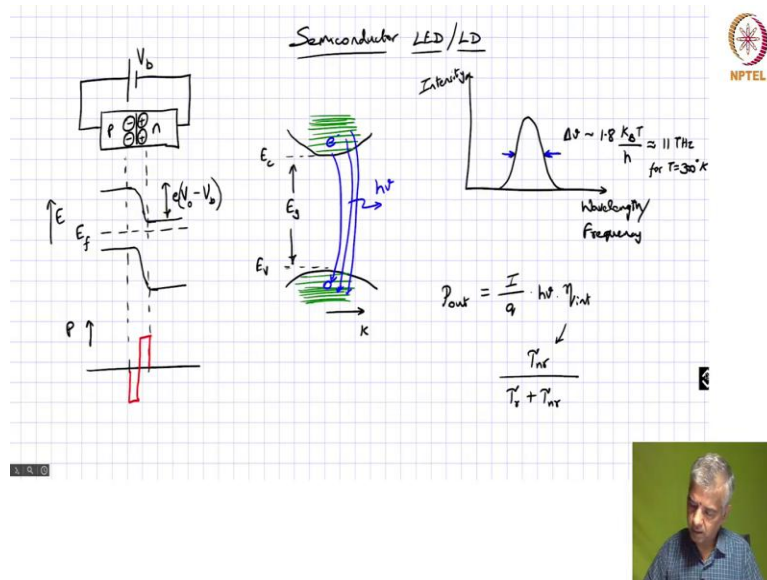 Semiconductor LED/LD
NPTEL
V_b
p n
e(V_o - V_b)
E
E_f
ρ
E_c
E_g
E_v
e⁻
hν
k
Intensity
Δν ~ 1.8 k_B T / h ≈ 11 THz
for T=300°K
Wavelength/
Frequency
P_out = I/q · hν · η_int
τ_nr / (τ_r + τ_nr)